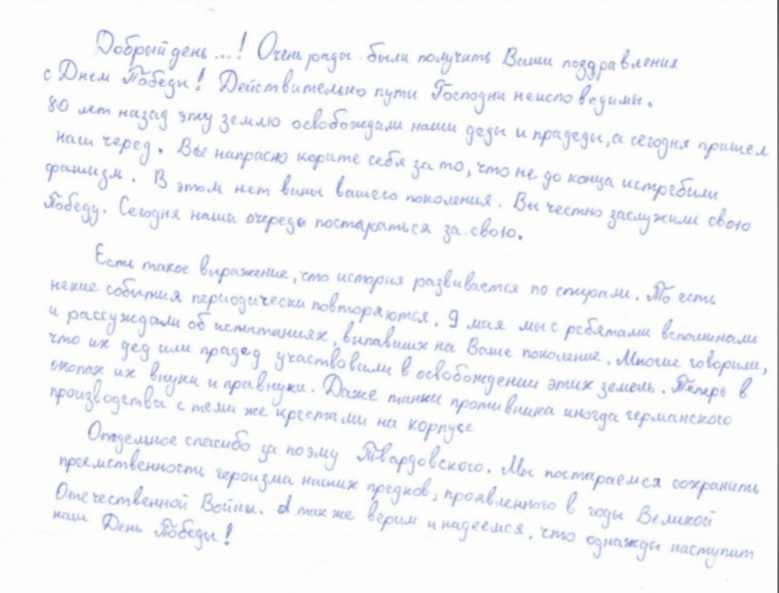 Добрый день...! Очень рады были получить Ваши поздравления
с Днем Победы! Действительно пути Господни неисповедимы.
80 лет назад эту землю освобождали наши деды и прадеды, а сегодня пришел
наш черед. Вы напрасно корите себя за то, что не до конца истребили
фашизм. В этом нет вины вашего поколения. Вы честно заслужили свою
Победу. Сегодня наша очередь постараться за свою.
Есть такое выражение, что история развивается по спирали. То есть
некие события периодически повторяются. 9 мая мы с ребятами вспоминали
и рассуждали об испытаниях, выпавших на Ваше поколение. Многие говорили,
что их дед или прадед участвовали в освобождении этих земель. Теперь в
окопах их внуки и правнуки. Даже танки противника иногда германского
производства с теми же крестами на корпусе
Отдельное спасибо за поэму Твардовского. Мы постараемся сохранить
преемственность героизма наших предков, проявленного в годы Великой
Отечественной Войны. А также верим и надеемся, что однажды наступит
наш День Победы!